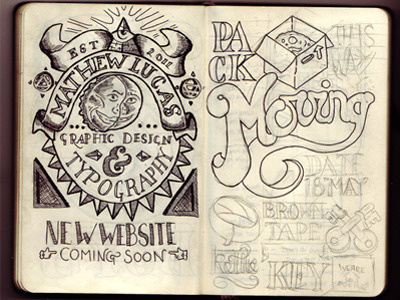 EST 2011
MATHEW LUCAS
GRAPHIC DESIGN
&
TYPOGRAPHY
NEW WEBSITE
COMING SOON
PACK
THIS WAY
Moving
DATE
18 MAY
BROWN
TAPE
KEY